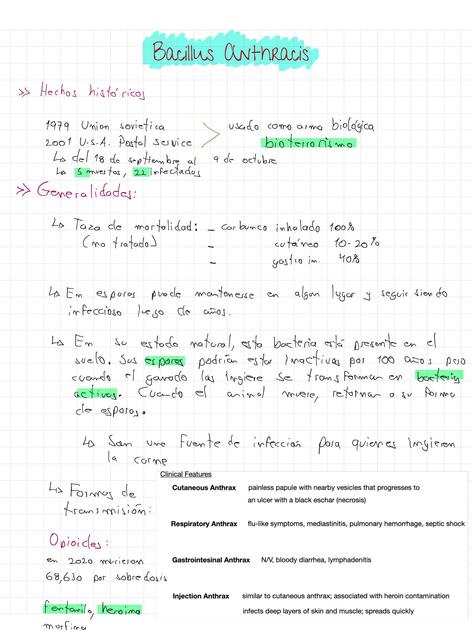 Bacillus anthracis
>> Hechos históricos
1979 Union sovietica
2001 U.S.A. Postal Service
usado como arma biológica
bioterrorismo
↳ del 18 de septiembre al 9 de octubre
↳ 5 muertos, 22 infectados
>> Generalidades:
↳ Taza de mortalidad: - carbunco inhalado 100%
(no tratado) - cutáneo 10-20%
- gastro in. 40%
↳ En esporas puede mantenerse en algun lugar y seguir siendo
infeccioso luego de años.
↳ En su estado natural, esta bacteria está presente en el
suelo. Sus esporas podrían estar inactivas por 100 años pero
cuando el ganado las ingiere se transforman en bacterias
activas. Cuando el animal muere, retornan a su forma
de esporas.
↳ San una fuente de infeccion para quienes ingieren
la carne
↳ Formas de
transmisión:
Clinical Features
Cutaneous Anthrax painless papule with nearby vesicles that progresses to
an ulcer with a black eschar (necrosis)
Respiratory Anthrax flu-like symptoms, mediastinitis, pulmonary hemorrhage, septic shock
Gastrointesinal Anthrax N/V, bloody diarrhea, lymphadenitis
Injection Anthrax similar to cutaneous anthrax; associated with heroin contamination
infects deep layers of skin and muscle; spreads quickly
Opioides:
en 2020 murieron
68,630 por sobredosis
fentanilo, heroina
morfina